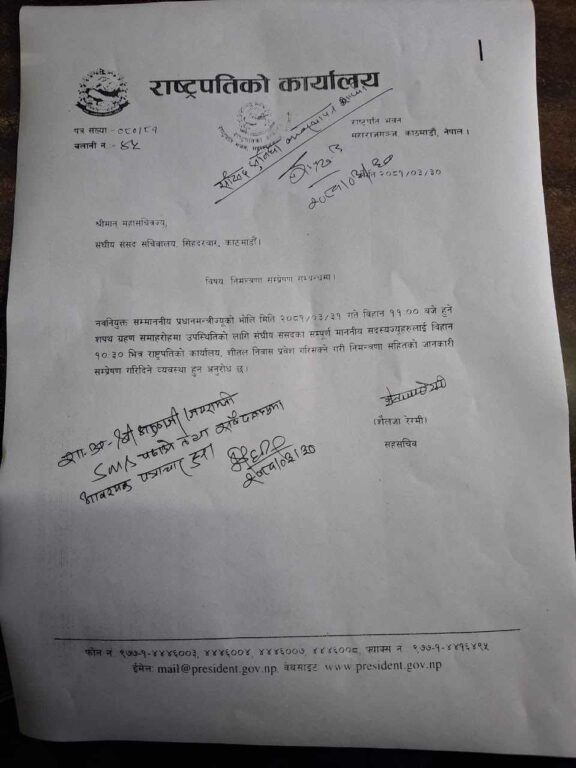 राष्ट्रपतिको कार्यालय
पत्र संख्या -०८०/८१
चलानी न - ४५
राष्ट्रपति भवन
महाराजगञ्ज काठमाडौं, नेपाल।
२०८१/०३/३०
मिति २०८१/०३/३०
श्रीमान महासचिवज्यू,
संघीय संसद सचिवालय, सिंहदरवार, काठमाडौं।
विषय: निमन्त्रणा सम्प्रेषण सम्बन्धमा।
नवनियुक्त सम्माननीय प्रधानमन्त्रीज्यूको भोलि मिति २०८१/०३/३१ गते विहान ११:०० बजे हुने
शपथ ग्रहण समाहरोहमा उपस्थितिको लागि संघीय संसदका सम्पूर्ण माननीय सदस्यज्यूहरुलाई विहान
१०:३० भित्र राष्ट्रपतिको कार्यालय, शीतल निवास प्रवेश गरिसक्ने गरी निमन्त्रणा सहितको जानकारी
सम्प्रेषण गरिदिने व्यवस्था हुन अनुरोध छ।
(शैलजा रेग्मी)
सहसचिव
SMS
आवश्यक पत्राचार
२०८१/०३/३०
फोन नं. ९७७-१-४४४६००३, ४४४६००४, ४४४६००७, ४४४६००८, फ्याक्स नं. ९७७-१-४४१६४९५
ईमेन: mail@president.gov.np. वेबसाइट www.president.gov.np